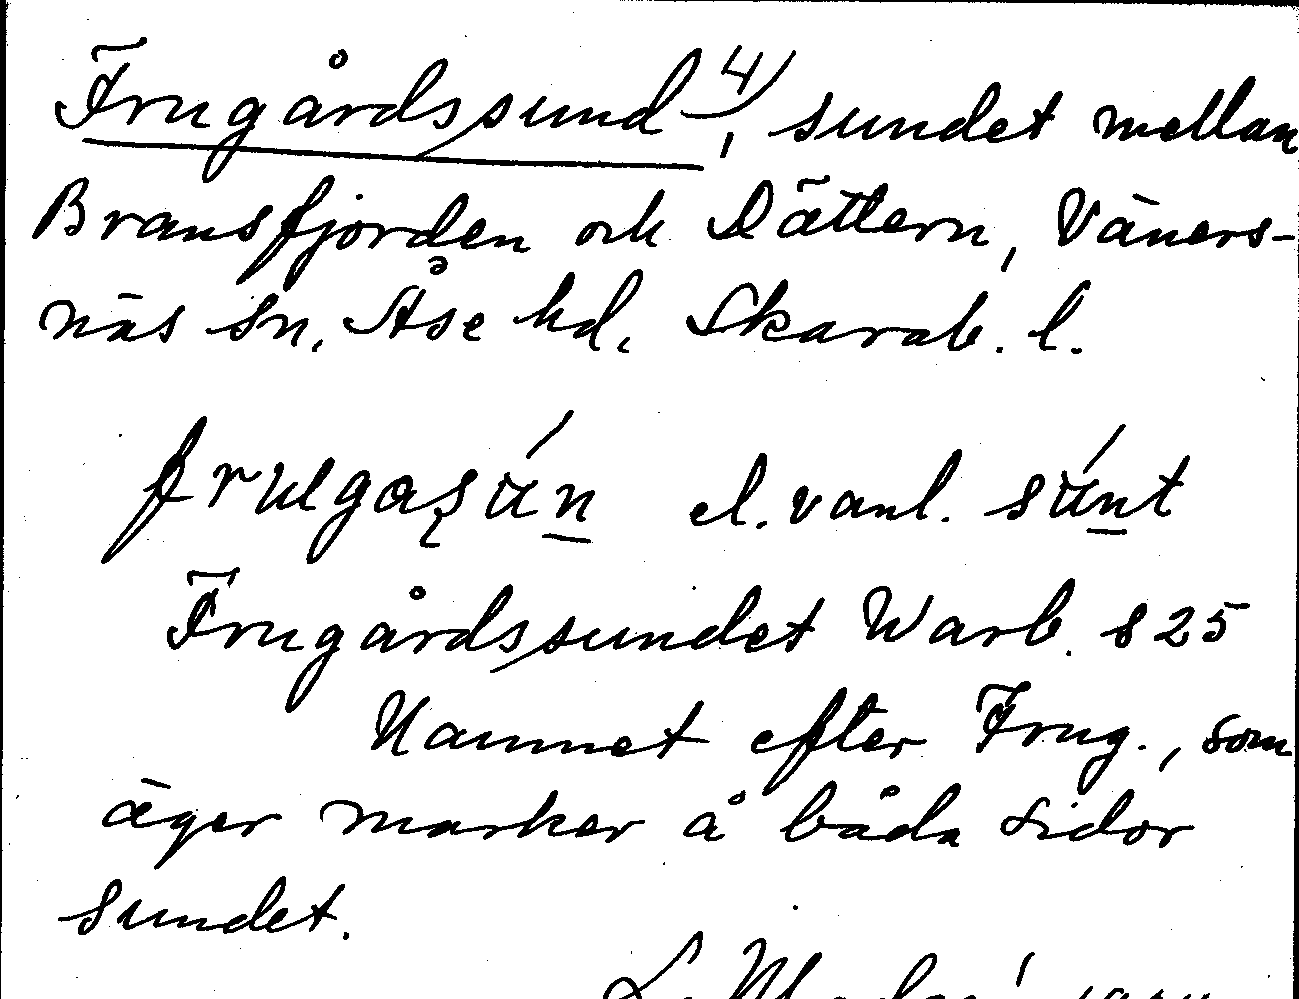 Frugårdssund 4), sundet mellan
Bransfjorden och Dättern, Väners-
näs sn, Åse hd. Skarab. l.
frugaşún el. vanl. súnt
Frugårdssundet Warb. s 25
Namnet efter Frug., som
äger marker å båda sidor
sundet.